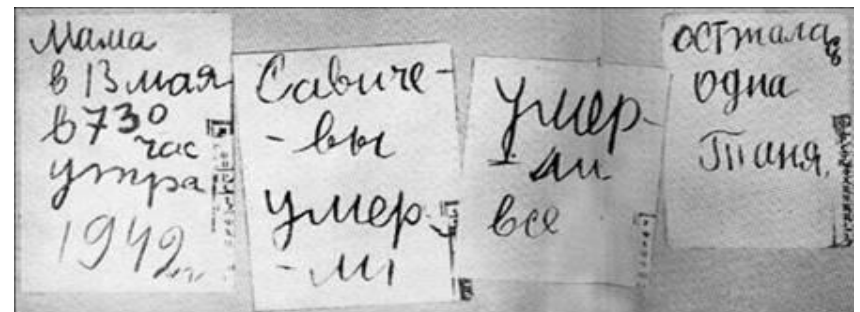 Мама
в 13 мая
в 730
час
утра
1942 г.
Савиче-
-вы
умер-
-ли
умер-
-ли
все
осталась
одна
Таня.